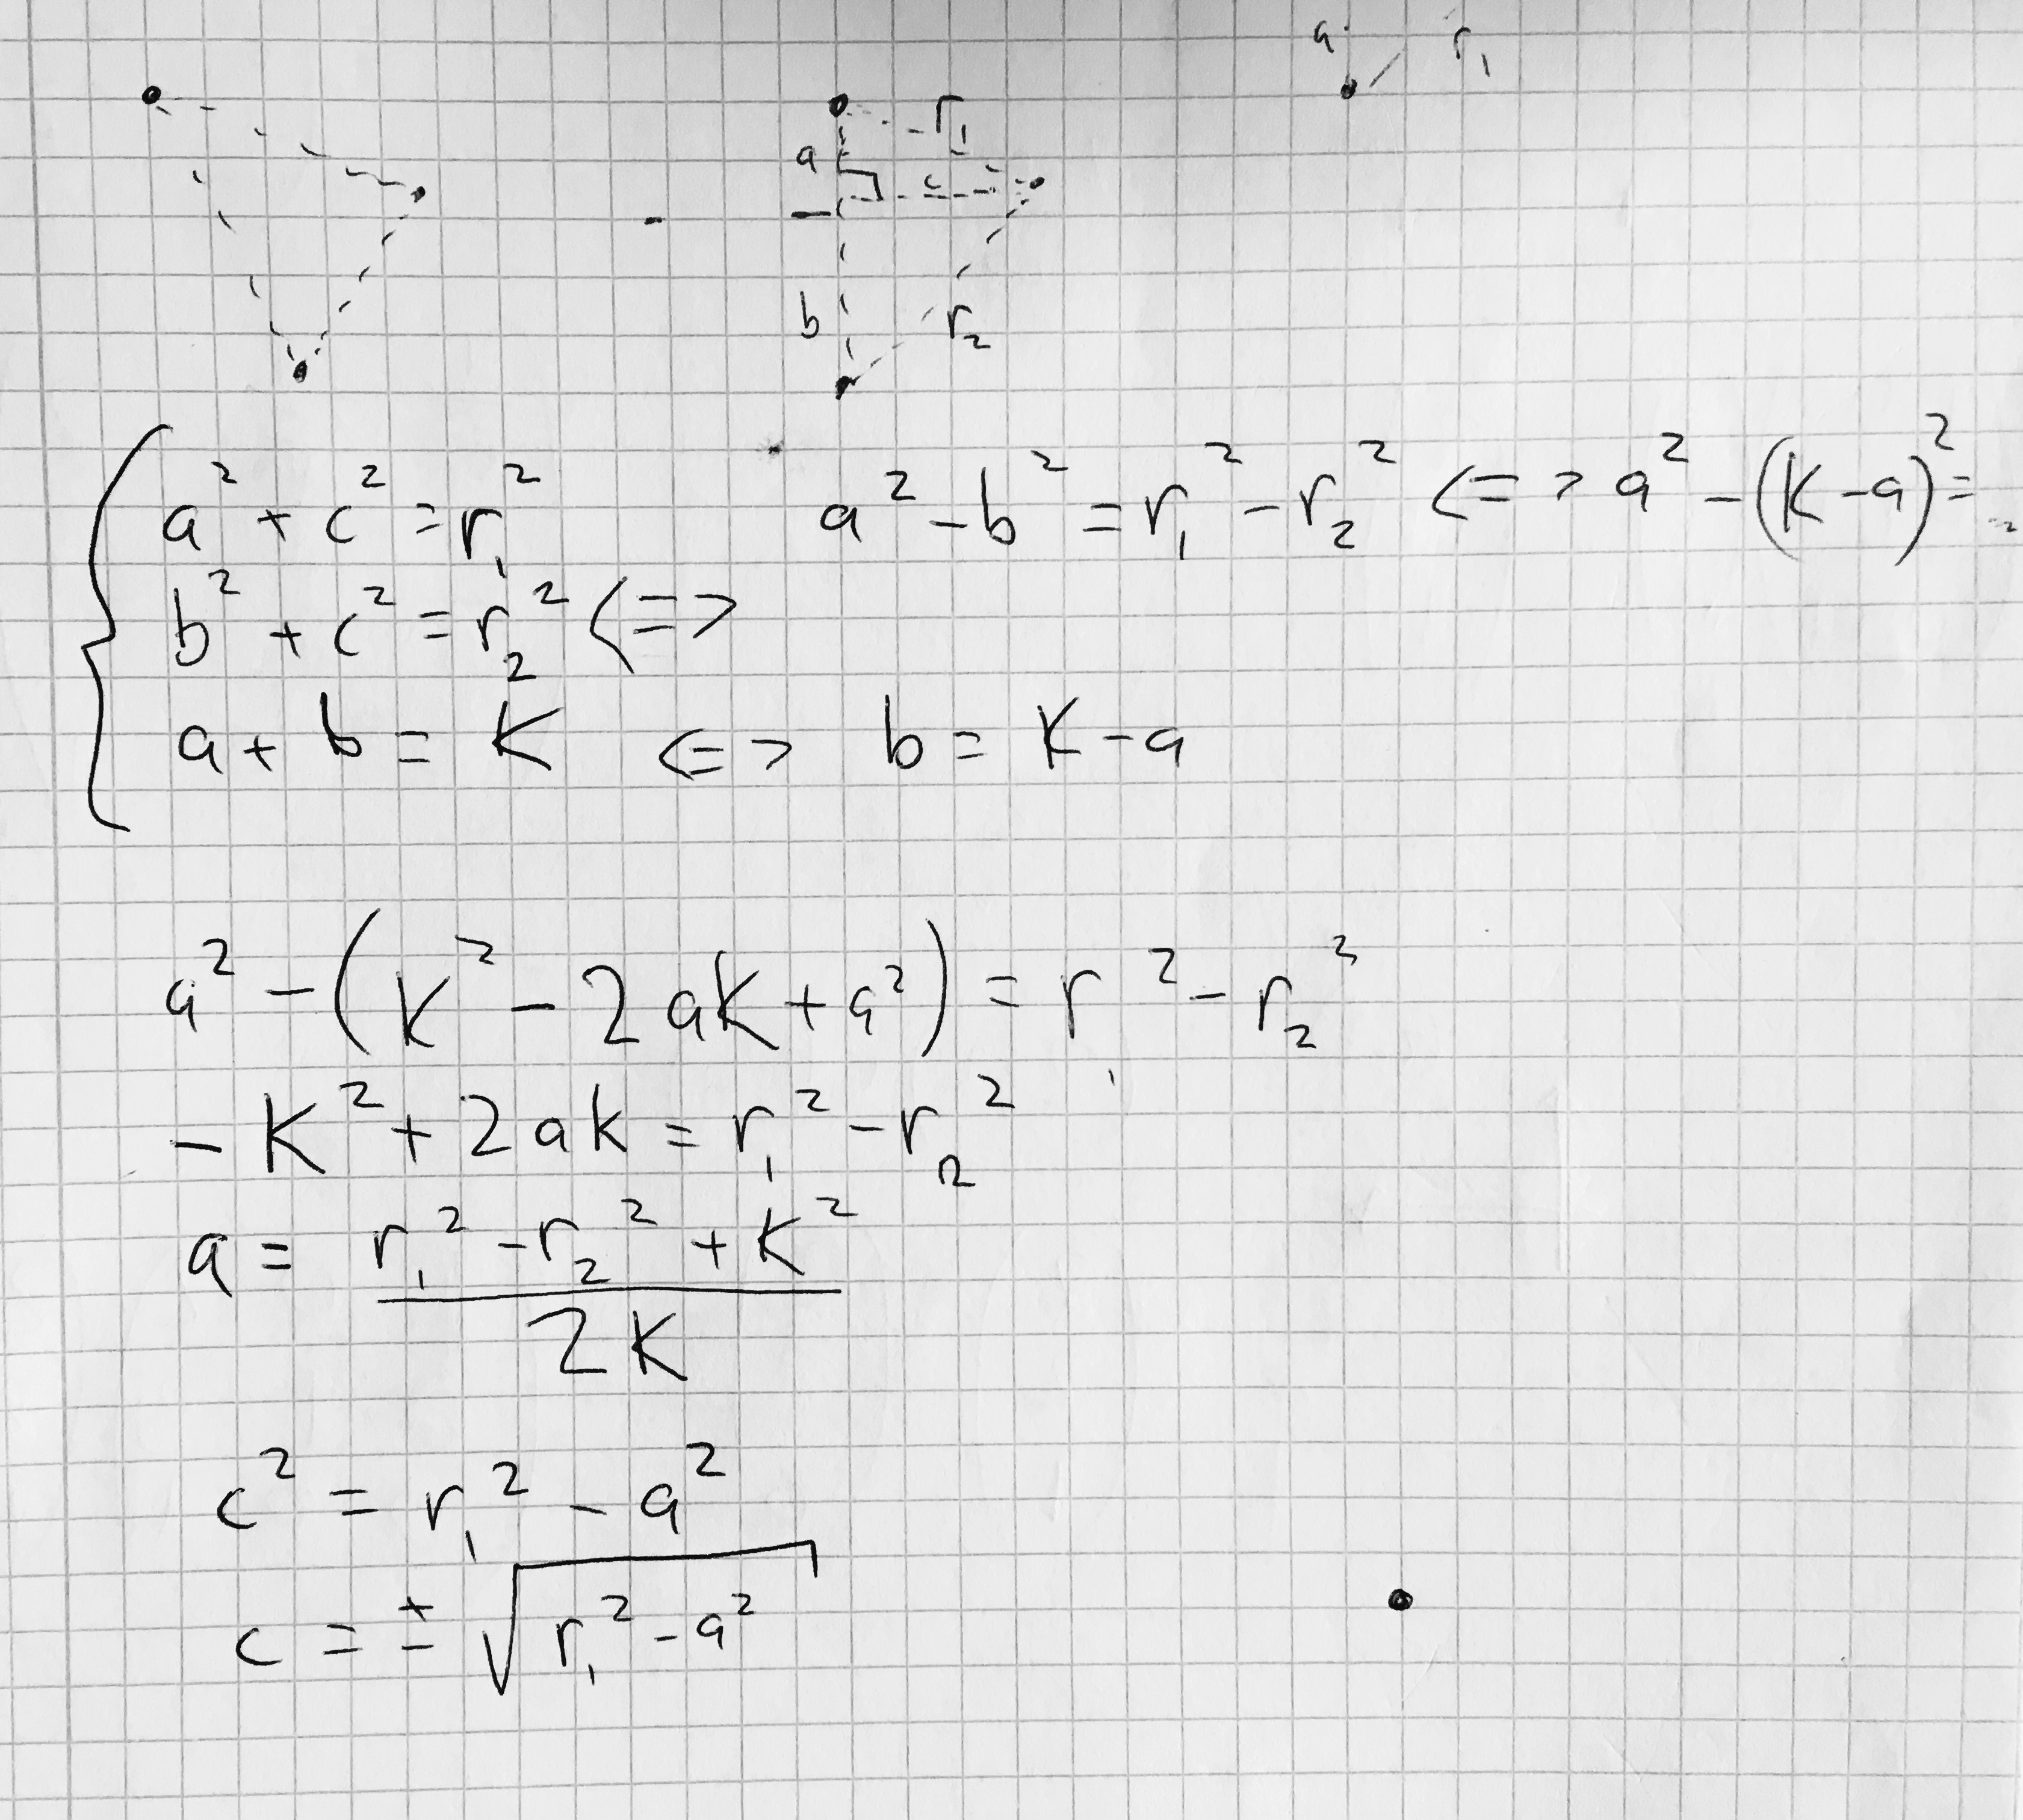 a r₁
r₁
a
c
b
r₂
a² + c² = r₁² a² - b² = r₁² - r₂² <=> a² - (K - a)² =
b² + c² = r₂² <=>
a + b = K <=> b = K - a
a² - (K² - 2aK + a²) = r² - r₂²
- K² + 2ak = r₁² - r₂²
a = r₁² - r₂² + K²
2K
c² = r₁² - a²
c = ± √r₁² - a²